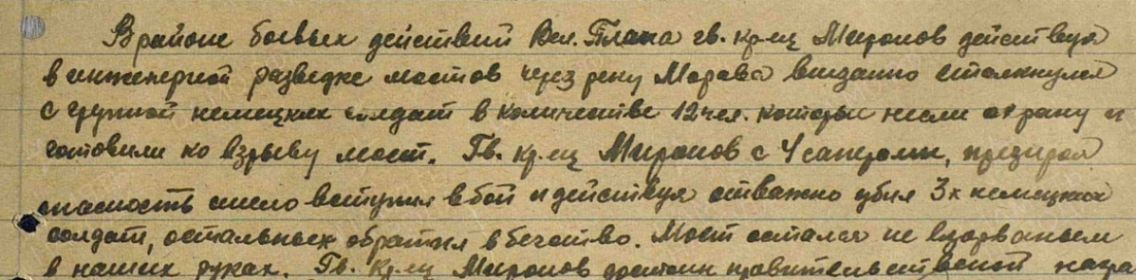 В районе боевых действий Вел. Плана гв. кр-ец Миронов действуя
в инженерной разведке мостов через реку Морава внезапно столкнулся
с группой немецких солдат в количестве 12 чел. которые несли охрану и
готовили ко взрыву мост. Гв. кр-ец Миронов с 4 саперами, презирая
опасность смело вступил в бой и действуя отважно убил 3х немецких
солдат, остальных обратил в бегство. Мост остался не взорваным
в наших руках. Гв. кр-ец Миронов достоин правительственой награ